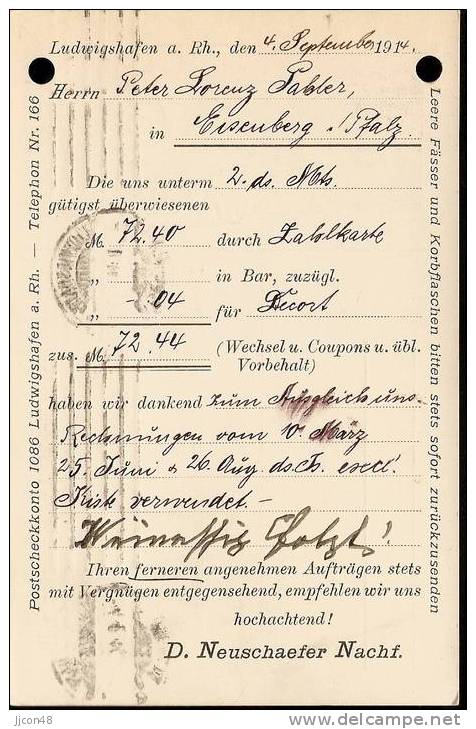 Ludwigshafen a. Rh., den 4. September 1914.
Herrn Peter Lorenz Pabler,
in Eisenberg Pfalz.
Die uns unterm 2. ds. Mts.
gütigst überwiesenen
M. 72.40 durch Zahlkarte
„ in Bar, zuzügl.
„ -.04 für Decort
zus. M. 72.44 (Wechsel u. Coupons u. übl.
Vorbehalt)
haben wir dankend zum Ausgleich uns.
Rechnungen vom 10. März
25. Juni & 26. Aug. ds. Js. excl.
Kiste verwendet.-
Weinessig folgt!
Ihren ferneren angenehmen Aufträgen stets
mit Vergnügen entgegensehend, empfehlen wir uns
hochachtend!
D. Neuschaefer Nachf.
Postscheckkonto 1086 Ludwigshafen a. Rh. — Telephon Nr. 166
Leere Fässer und Korbflaschen bitten stets sofort zurückzusenden
jjcon48
delcampe.net